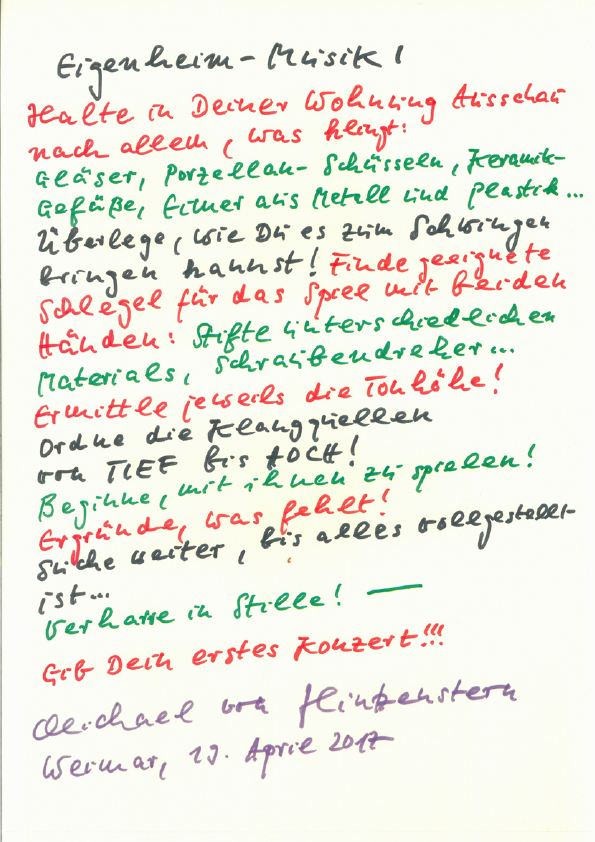 Eigenheim-Musik I
Halte in Deiner Wohnung Ausschau
nach allem, was klingt:
Gläser, Porzellan-Schüsseln, Keramik-
Gefäße, Eimer aus Metall und Plastik...
Überlege, wie Du es zum Schwingen
bringen kannst! Finde geeignete
Schlegel für das Spiel mit beiden
Händen: Stifte unterschiedlichen
Materials, Schraubendreher...
Ermittle jeweils die Tonhöhe!
Ordne die Klangquellen
von TIEF bis HOCH!
Beginne, mit ihnen zu spielen!
Ergründe, was fehlt!
Suche weiter, bis alles vollgestellt
ist...
Verharre in Stille! —
Gib Dein erstes Konzert!!!
Michael von Hintzenstern
Weimar, 19. April 2017